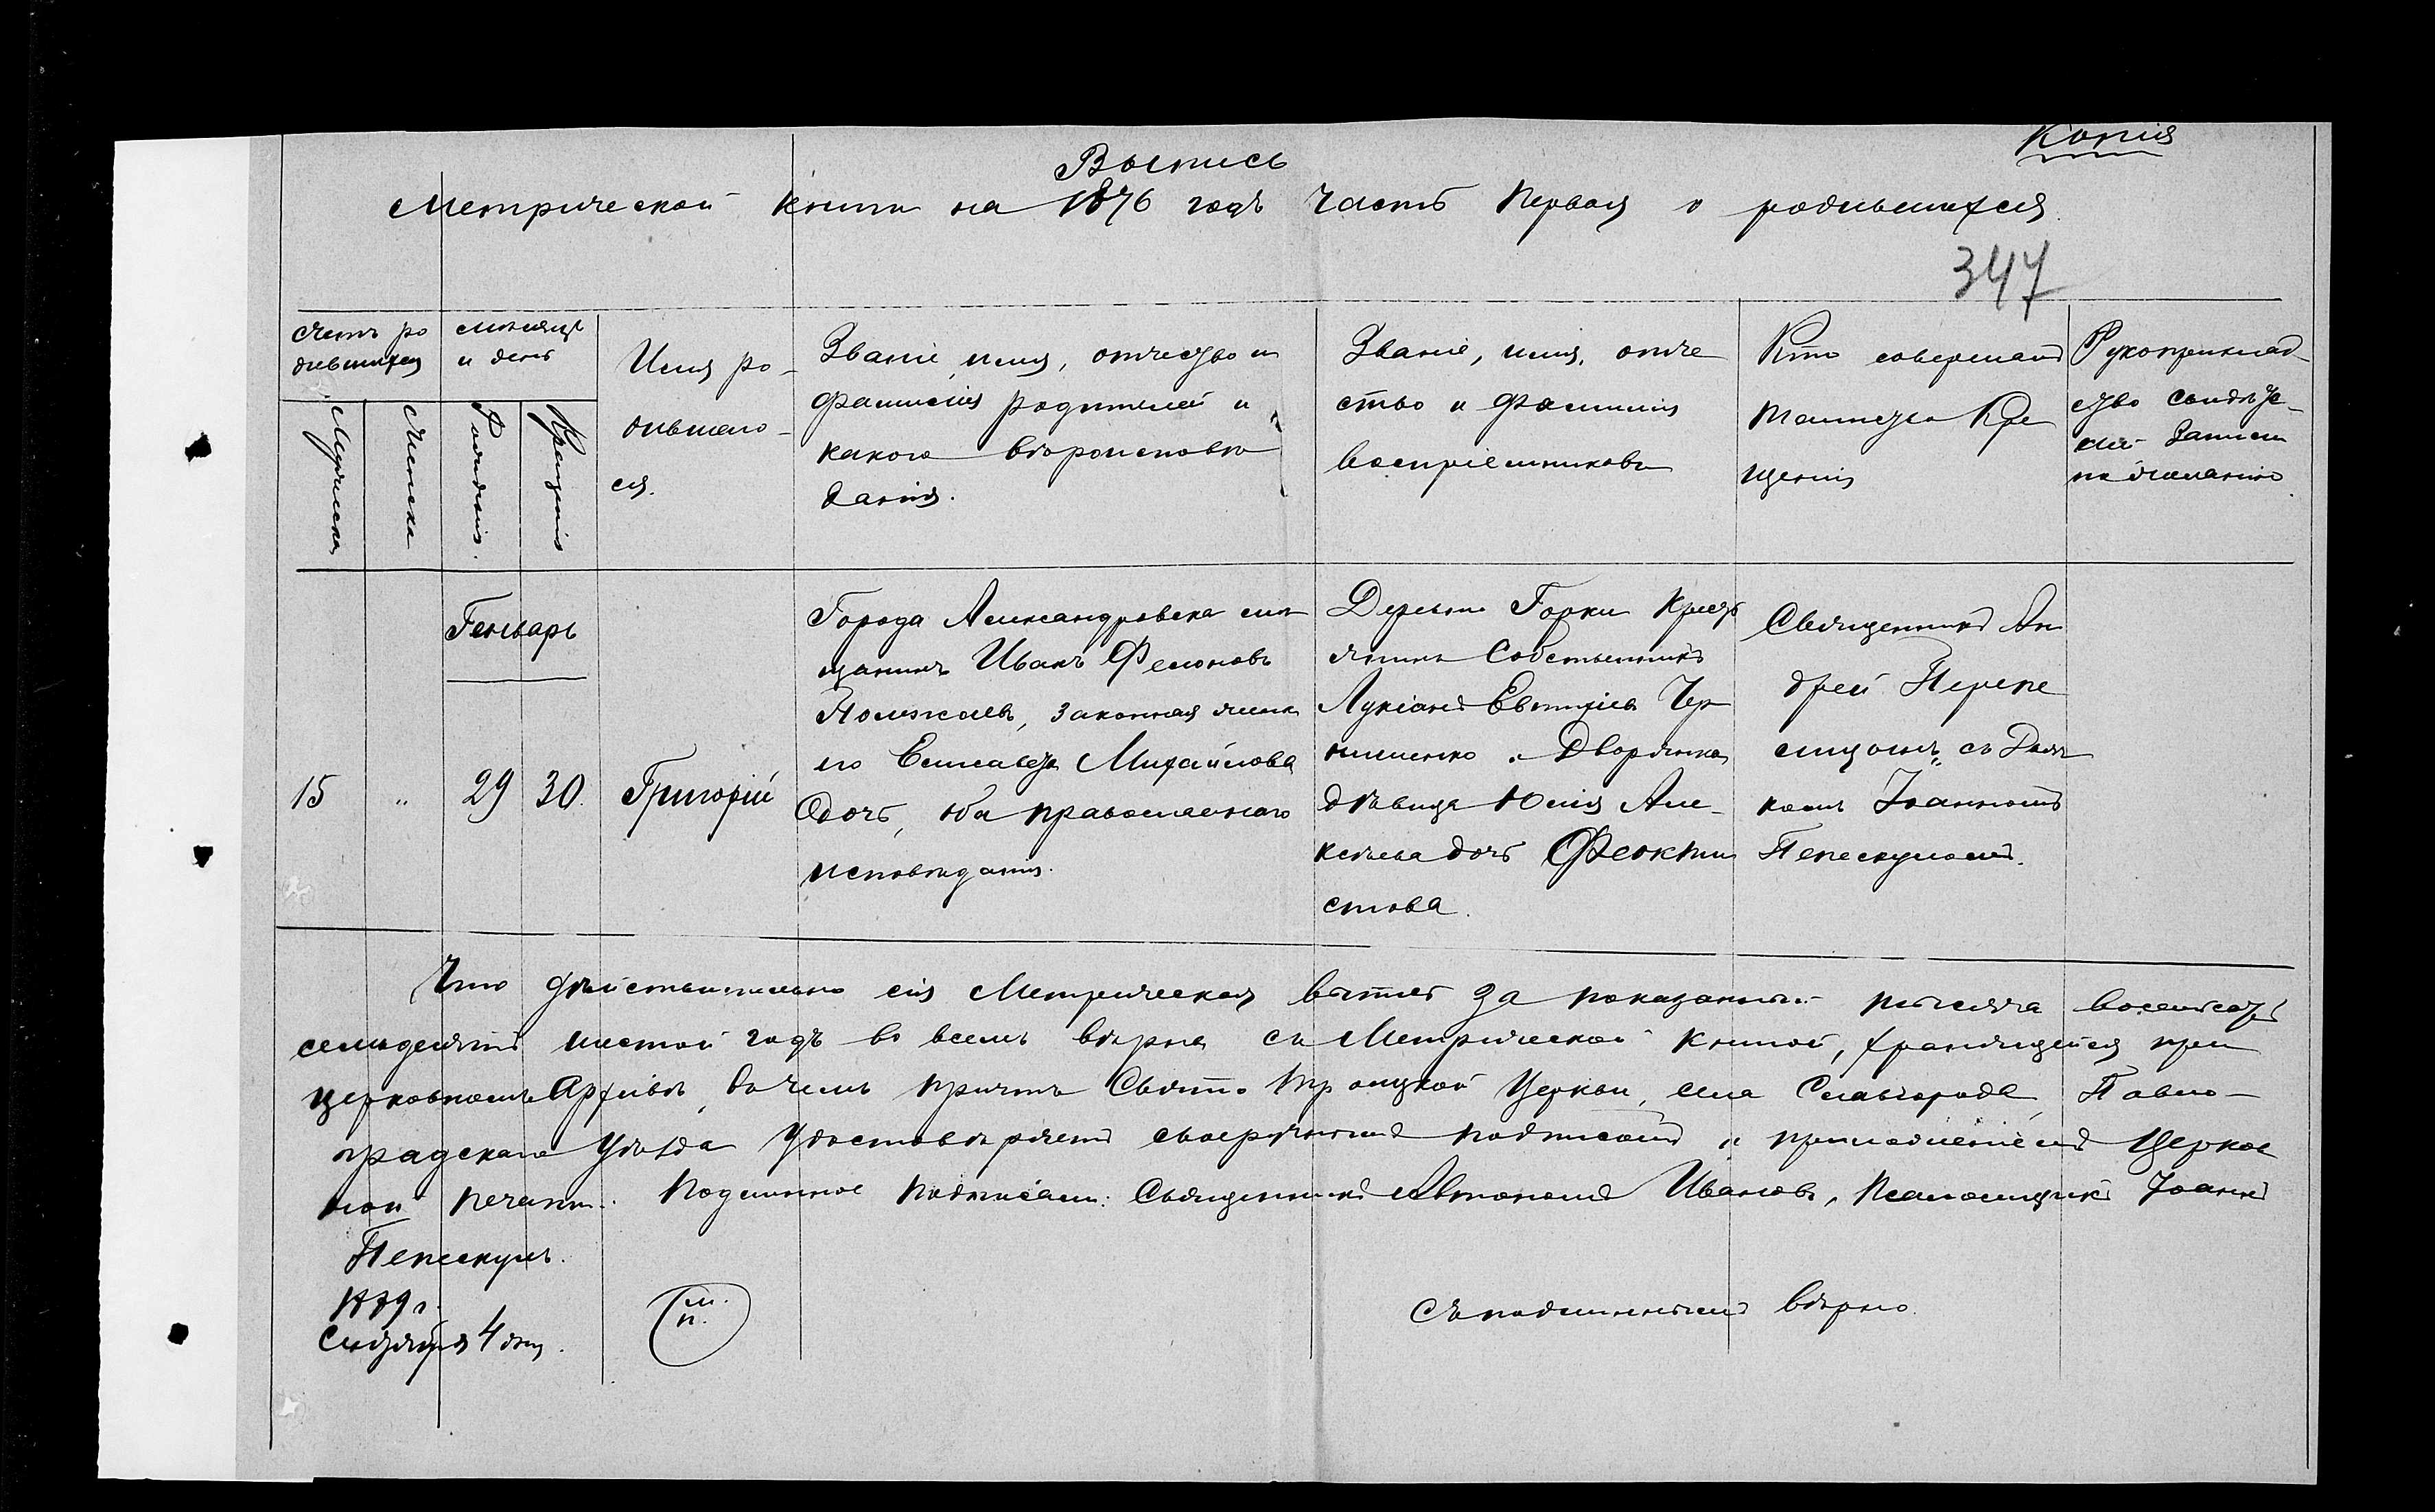 Копія
Выпись
Метрической книги на 1876 годъ часть первая о родившихся.
347
Счетъ ро
дившихся
Мужеска
Женска
мѣсяцъ
и день
Рожденія.
Крещенія
Имя ро-
дившаго-
ся.
Званіе, имя, отчество и
фамилія родителей и
какого вѣроисповѣ
данія.
Званіе, имя, отче
ство и фамилія
воспріемниковъ
Кто совершалъ
таинство Кре
щенія
Рукоприклад-
ство свидѣте-
лей записи
по желанію
Генварь
15
"
29
30.
Григорій
Города Александровска мѣ
щанинъ Иванъ
законная жена
его Елисавета Михайлова
дочь, оба православнаго
исповѣданія.
Деревни Горки Кресть
янинъ Собственникъ
Лукіанъ Евтихіевъ Чер
ниненко и Дворянка
дѣвица Юлія Але-
ксѣева дочь Феокти
стова.
Священникъ Ан
дрей Перепе
лицынъ, съ Дьяч
комъ Іоанномъ
Пепескуломъ.
Что дѣйствительно сія Метрическая выпись за показанный тысяча восемьсотъ
семьдесятъ шестой годъ во всемъ вѣрна съ Метрической книгой, хранящейся при
церковномъ Архивѣ, въ чемъ причтъ Свято Троицкой Церкви, села Славгорода, Павло-
градскаго уѣзда удостовѣряетъ своеручнымъ подписомъ и приложеніемъ Церков
ной печати. Подлинное подписали: Священникъ Автономъ Ивановъ, Псаломщикъ Іоаннъ
Пепескулъ.
м.
п.
4 дня.
Съ подлиннымъ вѣрно.